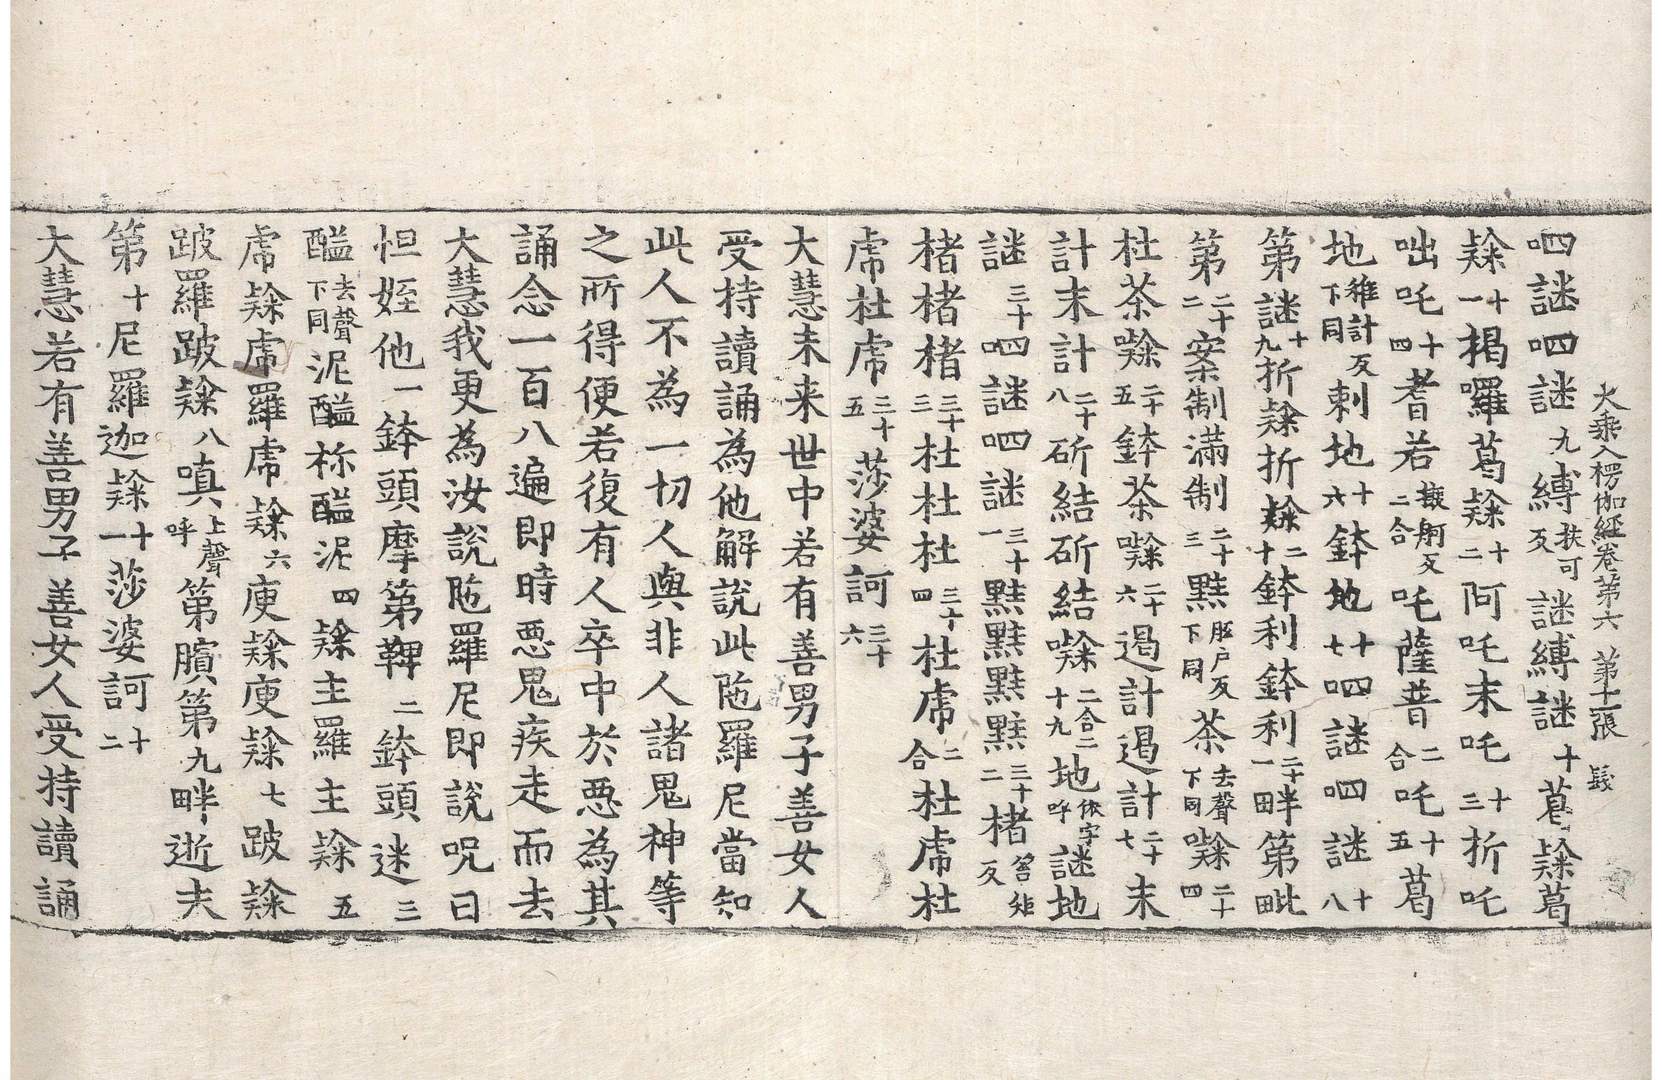 大乘入楞伽經卷第六 第十二張
呬謎呬謎九縛扶可反謎縛謎十葛䠫葛
䠫十一揭囉葛䠫十二阿吒末吒十三折吒
咄吒十四耆若攘舸反二合吒薩普二合吒十五葛
地雅計反下同剌地十六鉢地十七呬謎呬謎十八
第謎十九折䠫折䠫二十鉢利鉢利二十一畔第毗
第二十二案制滿制二十三黰胝戶反下同茶去聲下同㗚二十四
杜茶㗚二十五鉢茶㗚二十六遏計遏計二十七末
計末計二十八斫結斫結㗚二合二十九地依字呼謎地
謎三十呬謎呬謎三十一黰黰黰黰三十二楮笞矩反
楮楮楮三十三杜杜杜杜三十四杜虎二合杜虎杜
虎杜虎三十五莎婆訶三十六
大慧未来世中若有善男子善女人
受持讀誦為他解說此陁羅尼當知
此人不為一切人與非人諸鬼神等
之所得便若復有人卒中於悪為其
誦念一百八遍即時悪鬼疾走而去
大慧我更為汝說陁羅尼即說呪曰
怛姪他一鉢頭摩第鞞二鉢頭迷三
醯去聲下同泥醯祢醯泥四䠫主羅主䠫五
虎䠫虎羅虎䠫六庾䠫庾䠫七跛䠫
跛羅跛䠫八嗔上聲呼第臏第九畔逝末
第十尼羅迦䠫十一莎婆訶十二
大慧若有善男子善女人受持讀誦